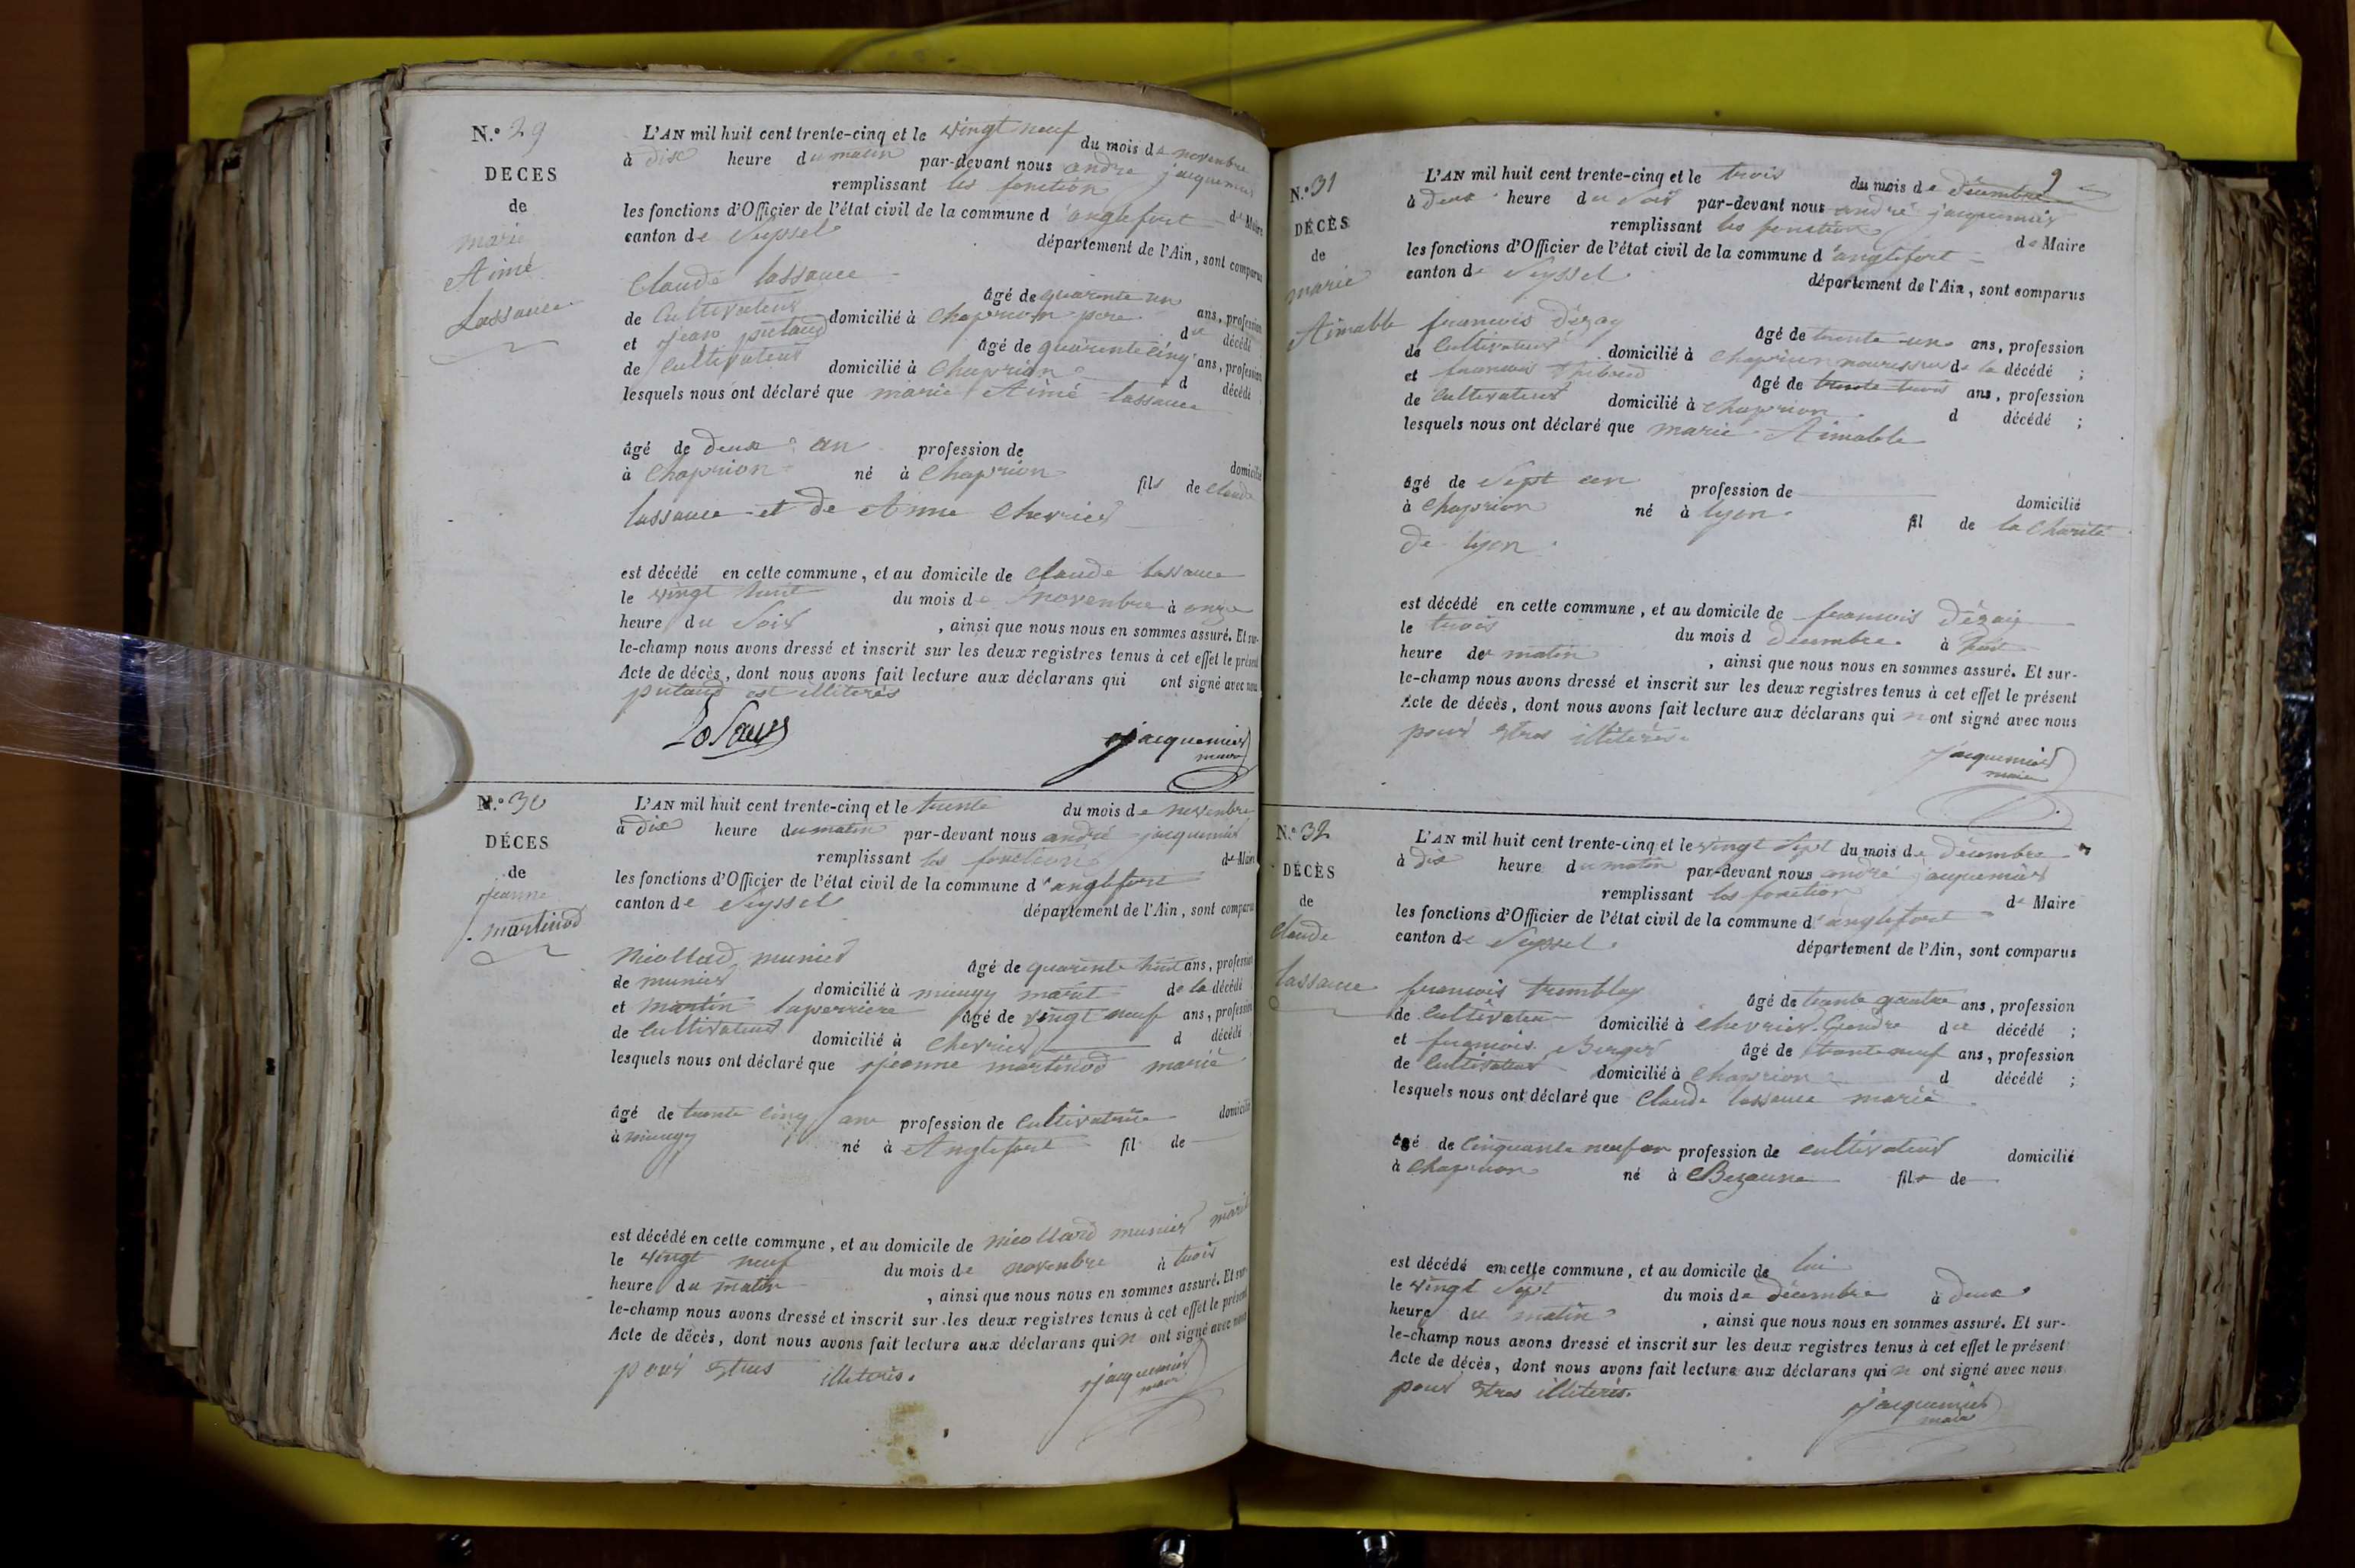 N.o 29
DECES
de
marie
Aimé
Lassauce
L'AN mil huit cent trente-cinq et le vingt neuf du mois de novembre
à dix heure du matin par-devant nous andré jacquemier
remplissant les fonction de Maire
les fonctions d'Officier de l'état civil de la commune d'anglefort
canton de Seyssel département de l'Ain, sont comparus
Claude lassauce âgé de quarente un ans, profession
de Cultivateur domicilié à Chaprion pere du décédé
et jean putaud âgé de quarente cinq ans, profession
de Cultivateur domicilié à Chaprion d décédé
lesquels nous ont déclaré que marie Aimé lassauce
âgé de deux an profession de domicilié
à Chaprion né à Chaprion fils de Claude
lassauce et de Anne Chevrier
est décédé en cette commune, et au domicile de Claude lassauce
le vingt huit du mois de novembre à onze
heure du Soir, ainsi que nous nous en sommes assuré. Et sur-
le-champ nous avons dressé et inscrit sur les deux registres tenus à cet effet le présent
Acte de décès, dont nous avons fait lecture aux déclarans qui ont signé avec nous
putaud est illiterés
jacquemier
maire
N.o 30
DÉCES
de
jeanne
martinod
L'AN mil huit cent trente-cinq et le trente du mois de novembre
à dix heure du matin par-devant nous andré jacquemier
remplissant les fonction de Maire
les fonctions d'Officier de l'état civil de la commune d'anglefort
canton de Seyssel département de l'Ain, sont comparus
Nicollad munier âgé de quarente huit ans, profession
de munier domicilié à mieugy marit de la décédé
et martin laperriere âgé de vingt neuf ans, profession
de Cultivateur domicilié à Chevrier d décédé
lesquels nous ont déclaré que jeanne martinod marié
âgé de trente cinq an profession de Cultivatrice domicilié
à mieugy né à Anglefort fil de
est décédé en cette commune, et au domicile de nicollard munier marit
le vingt neuf du mois de novembre à trois
heure du matin, ainsi que nous nous en sommes assuré. Et sur-
le-champ nous avons dressé et inscrit sur les deux registres tenus à cet effet le présent
Acte de décès, dont nous avons fait lecture aux déclarans qui n ont signé avec nous
pour Etres illiterés.
jacquemier
maire
9
N.o 31
DÉCÈS
de
marie
Aimable
L'AN mil huit cent trente-cinq et le trois du mois de décembre
à deux heure du Soir par-devant nous andré jacquemier
remplissant les fonction de Maire
les fonctions d'Officier de l'état civil de la commune d'anglefort
canton de Seyssel département de l'Ain, sont comparus
francois Dézay âgé de trente un ans, profession
de Cultivateur domicilié à Chaprion nourissur de la décédé ;
et francois âgé de trente trois ans, profession
de Cultivateur domicilié à Chaprion d décédé ;
lesquels nous ont déclaré que marie Aimable
âgé de Sept an profession de domicilié
à Chaprion né à lyon fil de la Charité
de lyon
est décédé en cette commune, et au domicile de francois Dézay
le trois du mois d decembre à huit
heure de matin, ainsi que nous nous en sommes assuré. Et sur-
le-champ nous avons dressé et inscrit sur les deux registres tenus à cet effet le présent
Acte de décès, dont nous avons fait lecture aux déclarans qui n ont signé avec nous
pour Etres illiterés.
jacquemier
maire
N.o 32
DÉCÈS
de
Claude
lassauce
L'AN mil huit cent trente-cinq et le vingt Sept du mois de décembre
à dix heure du matin par-devant nous andré jacquemier
remplissant les fonction de Maire
les fonctions d'Officier de l'état civil de la commune d'anglefort
canton de Seyssel département de l'Ain, sont comparus
francois tremblay âgé de trente quatre ans, profession
de Cultivateur domicilié à Chevrier Gendre du décédé ;
et francois Berger âgé de trente neuf ans, profession
de Cultivateur domicilié à Chaprion d décédé ;
lesquels nous ont déclaré que Claude lassauce marié
âgé de Cinquante neuf an profession de cultivateur domicilié
à Chaprion né à Bezaune fils de
est décédé en cette commune, et au domicile de lui
le vingt Sept du mois de décembre à deux
heure du matin, ainsi que nous nous en sommes assuré. Et sur-
le-champ nous avons dressé et inscrit sur les deux registres tenus à cet effet le présent
Acte de décès, dont nous avons fait lecture aux déclarans qui n ont signé avec nous
pour Etres illiterés.
jacquemier
maire